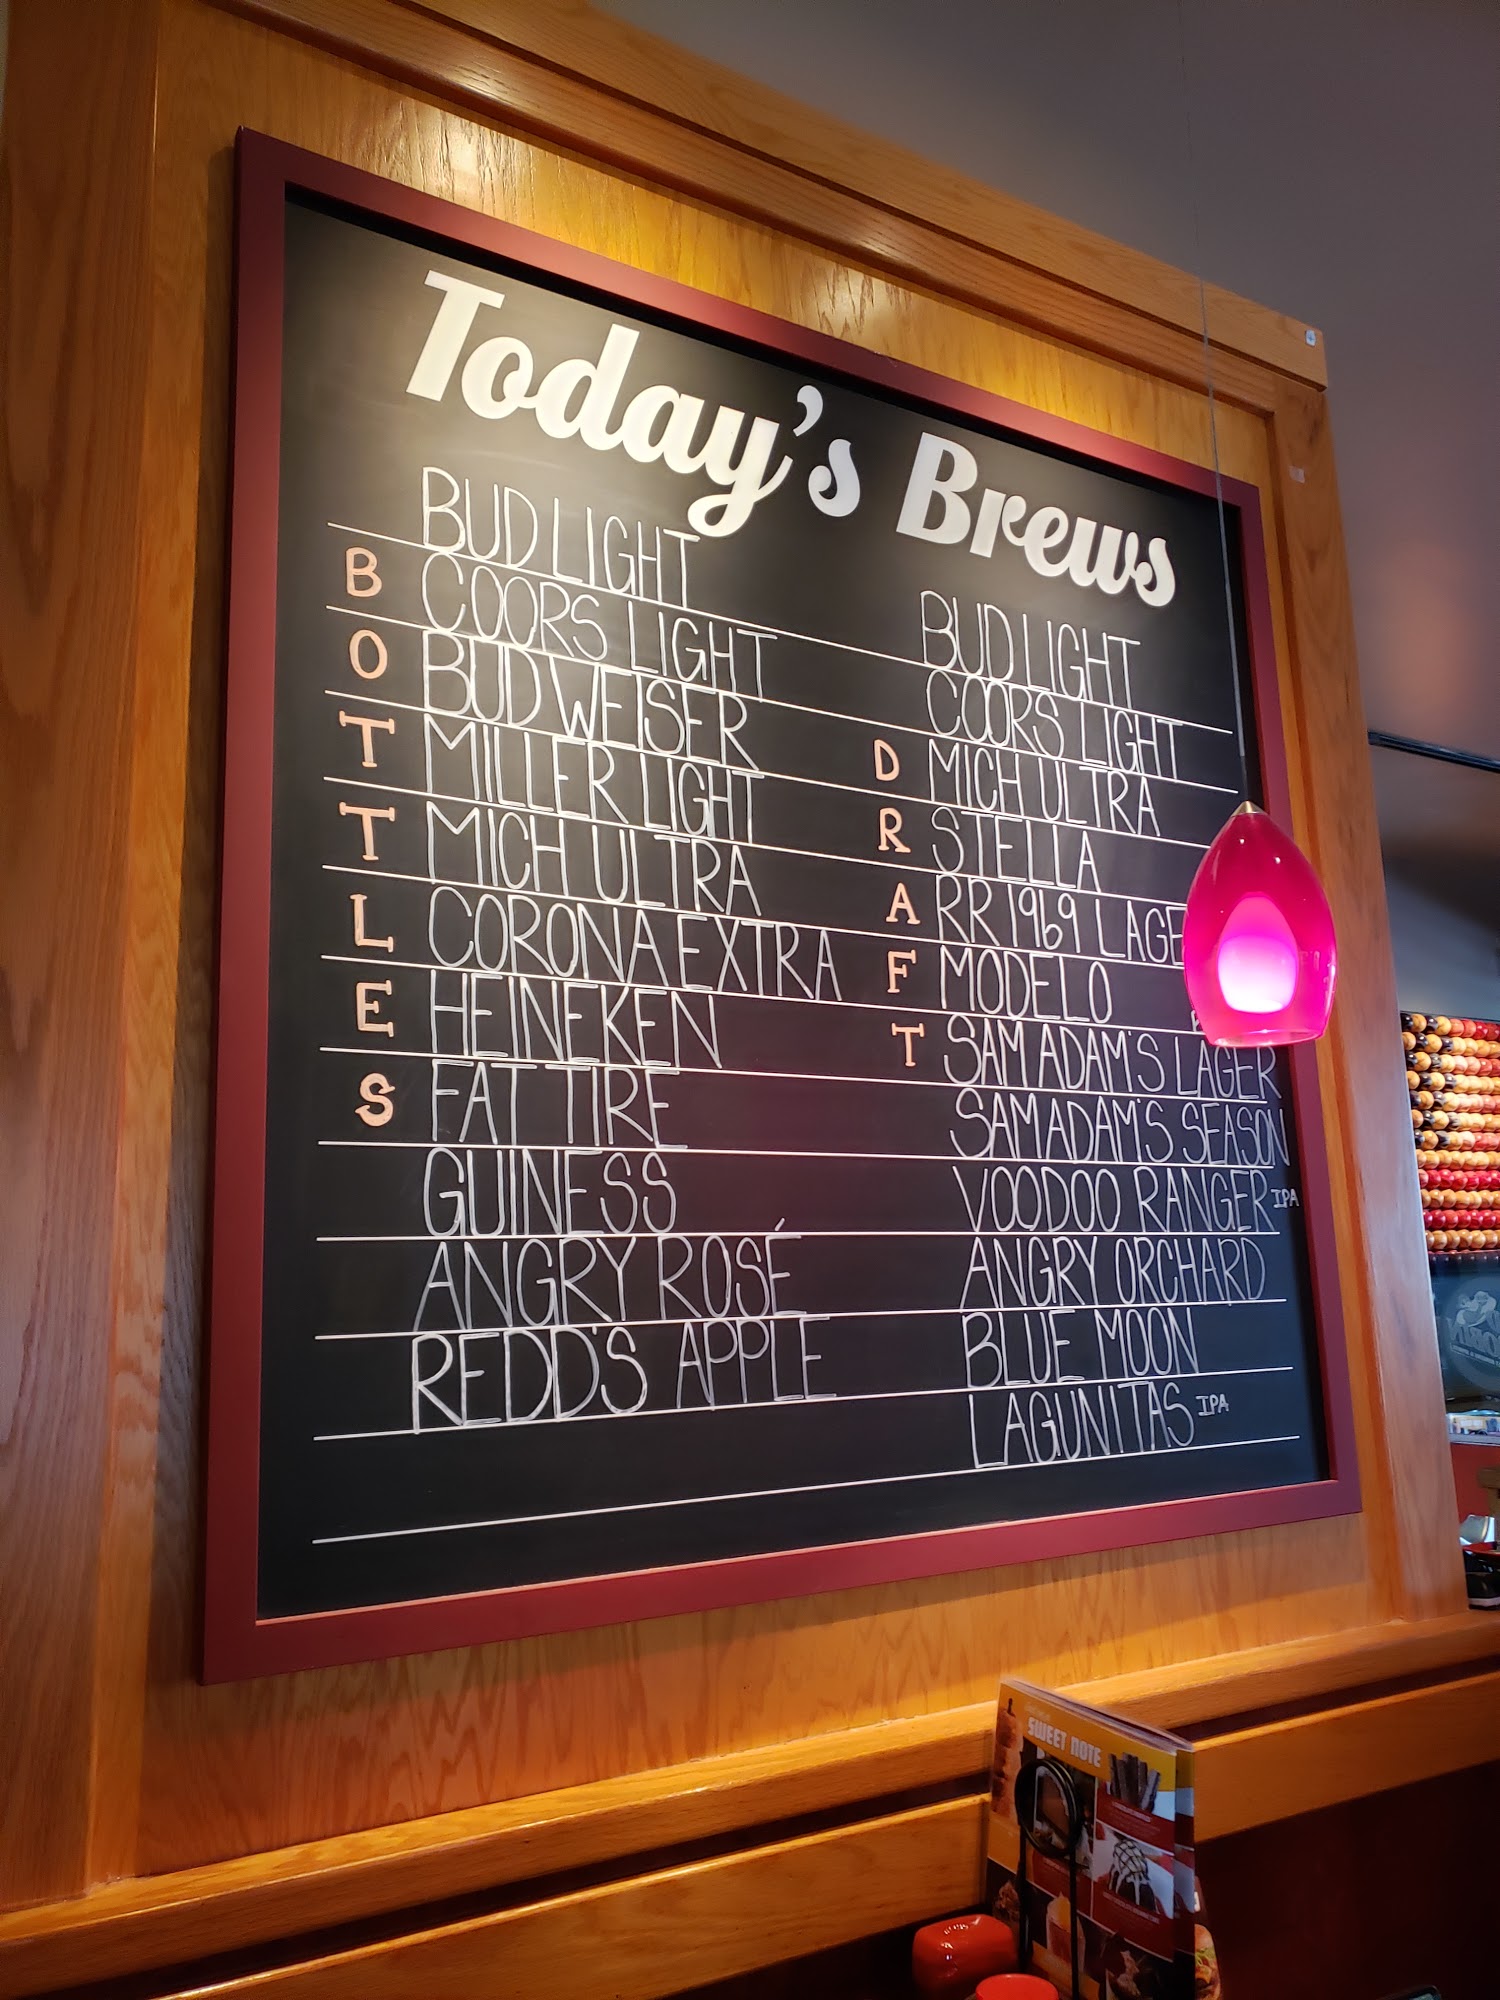 Today's Brews
BOTTLES
BUD LIGHT
COORS LIGHT
BUDWEISER
MILLER LIGHT
MICH ULTRA
CORONA EXTRA
HEINEKEN
FAT TIRE
GUINESS
ANGRY ROSÉ
REDD'S APPLE
DRAFT
BUD LIGHT
COORS LIGHT
MICH ULTRA
STELLA
RR 1969 LAGE
MODELO
SAM ADAM'S LAGER
SAM ADAM'S SEASON
VOODOO RANGER IPA
ANGRY ORCHARD
BLUE MOON
LAGUNITAS IPA
SWEET NOTE